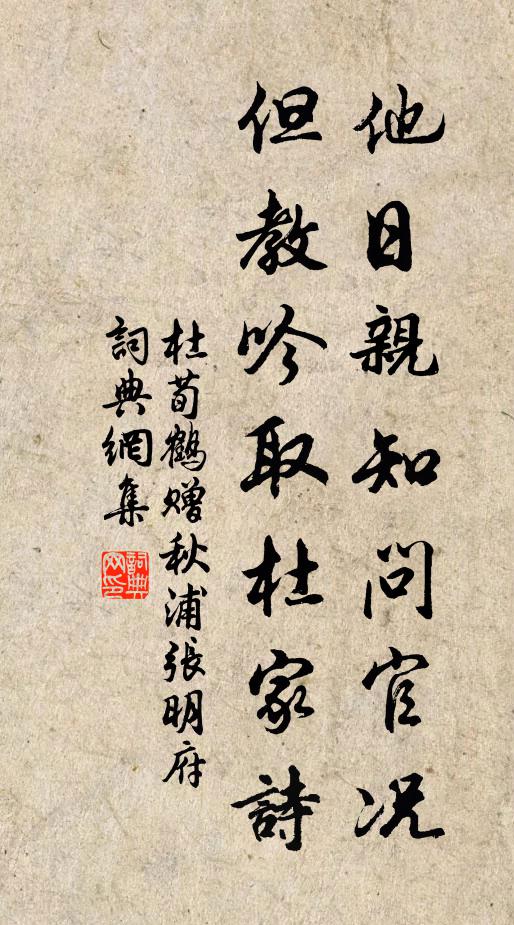 他日親知問官况
但教吟取杜家詩
杜荀鶴贈秋浦張明府
詞典網集
詞典网印